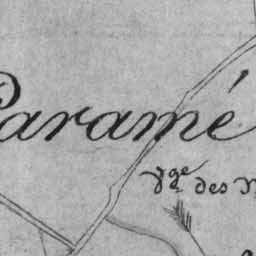 Paramé
Vge des